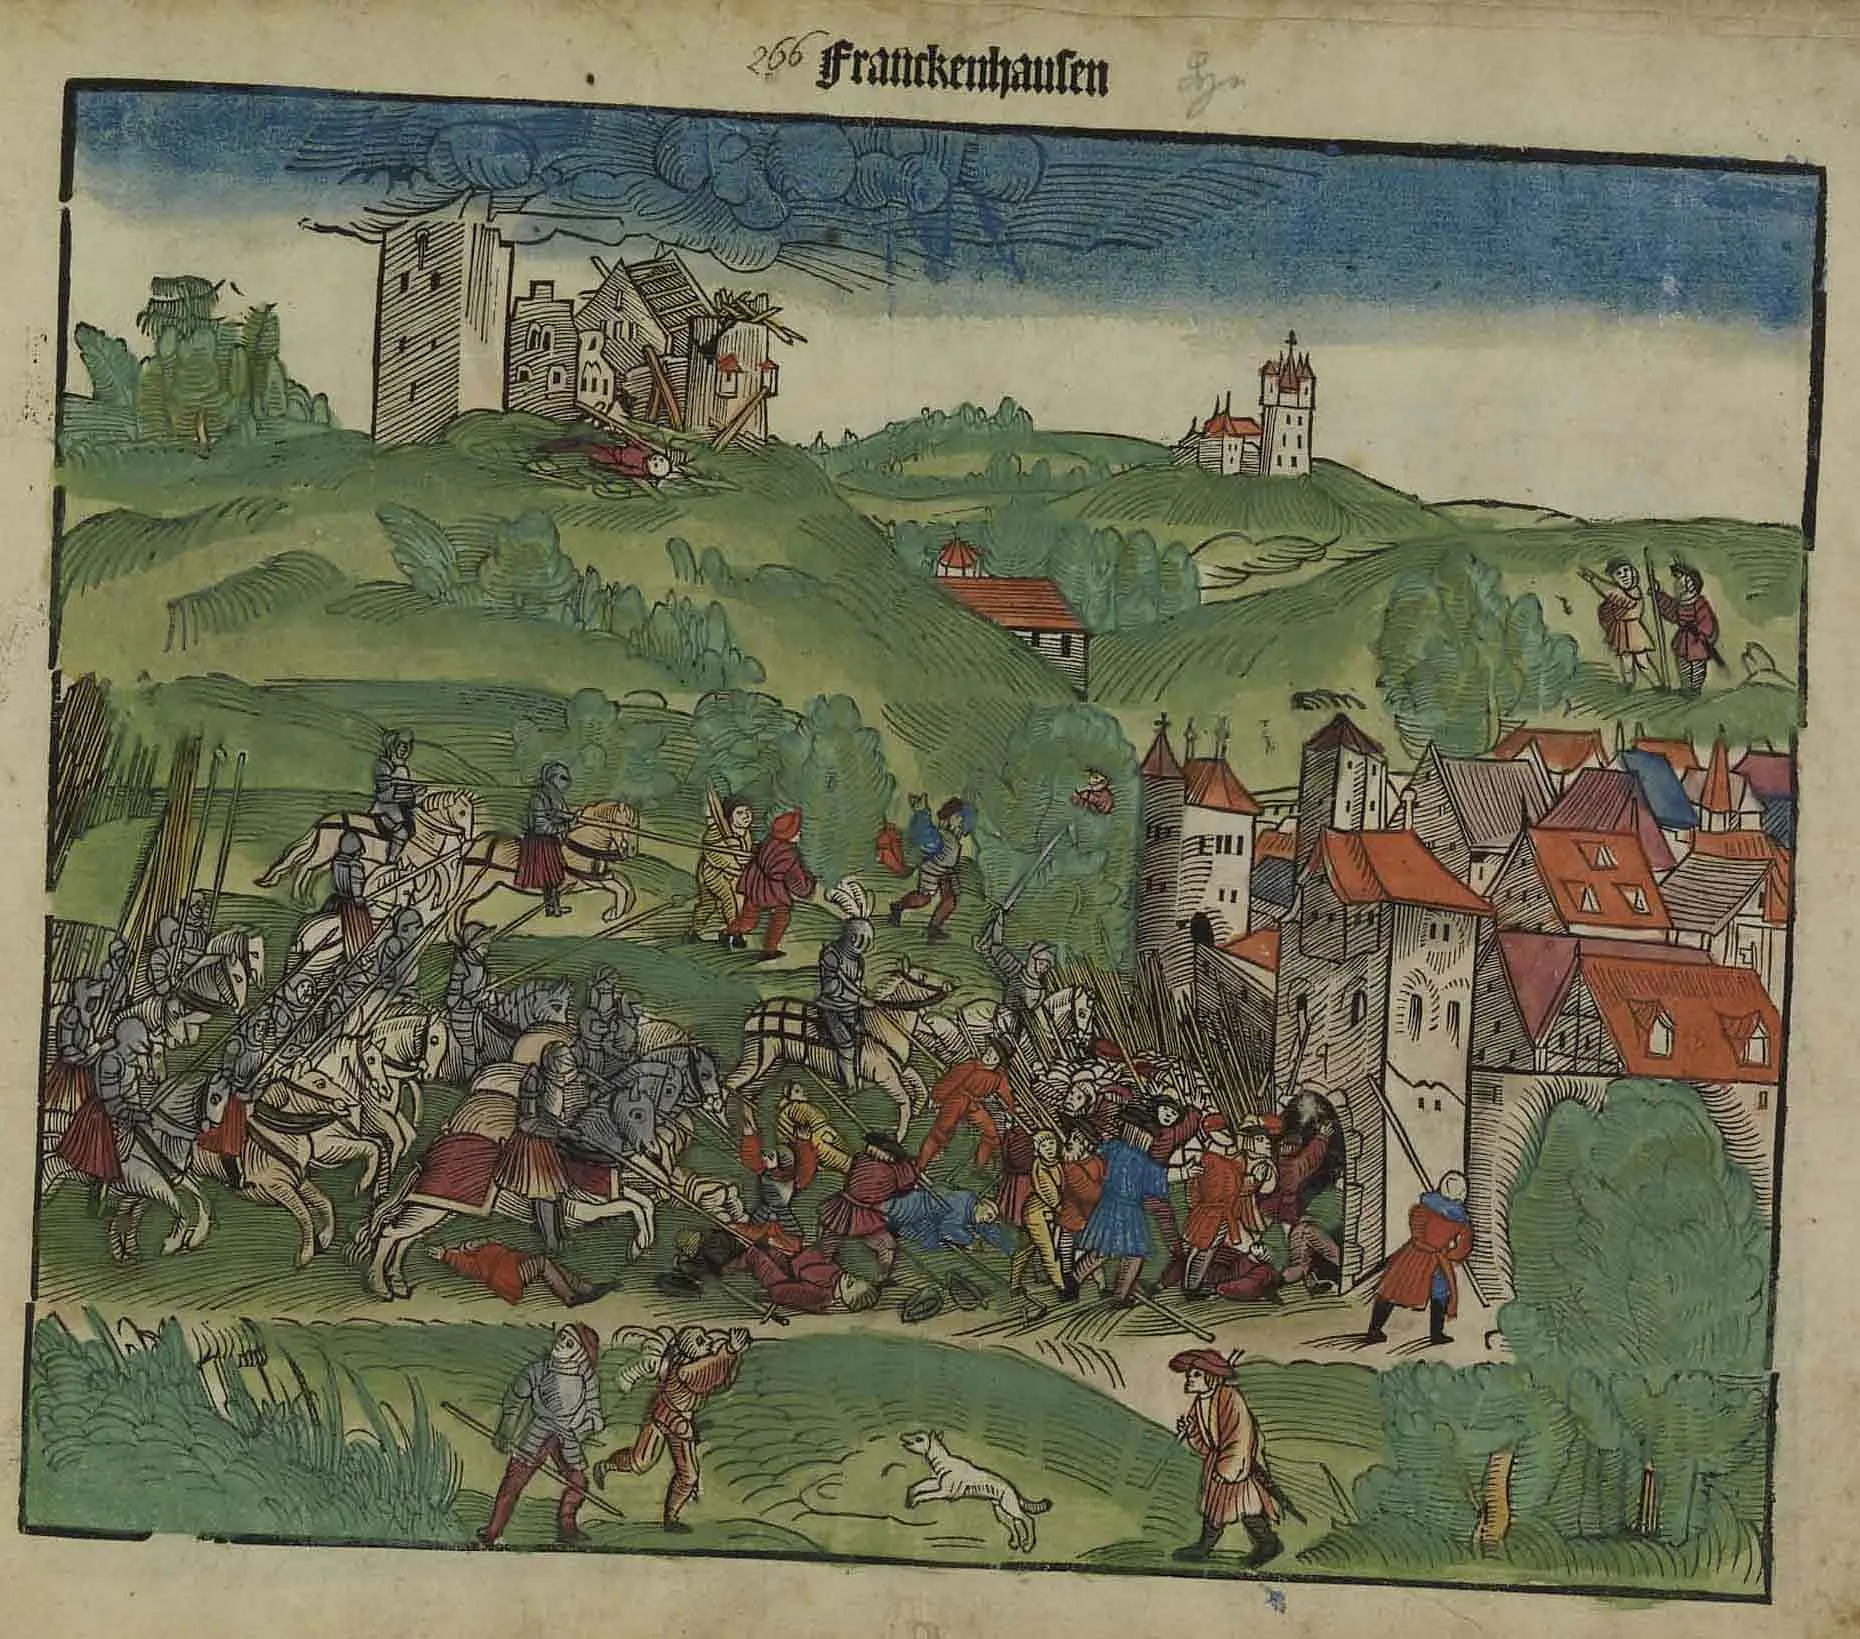 266 Franckenhausen